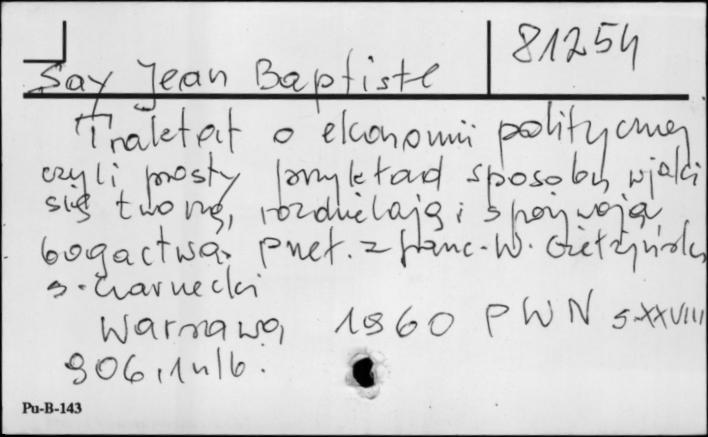 81254
Say Jean Baptiste
Traktat o ekonomii politycznej
czyli prosty przykład sposobu w jaki
się tworzą, rozdzielają i spożywają
bogactwa. Przet. z franc. W. Giełżyński
S. Czarnecki
Warszawa 1960 PWN s. XXVIII
906, 1 nlb.
Pu-B-143